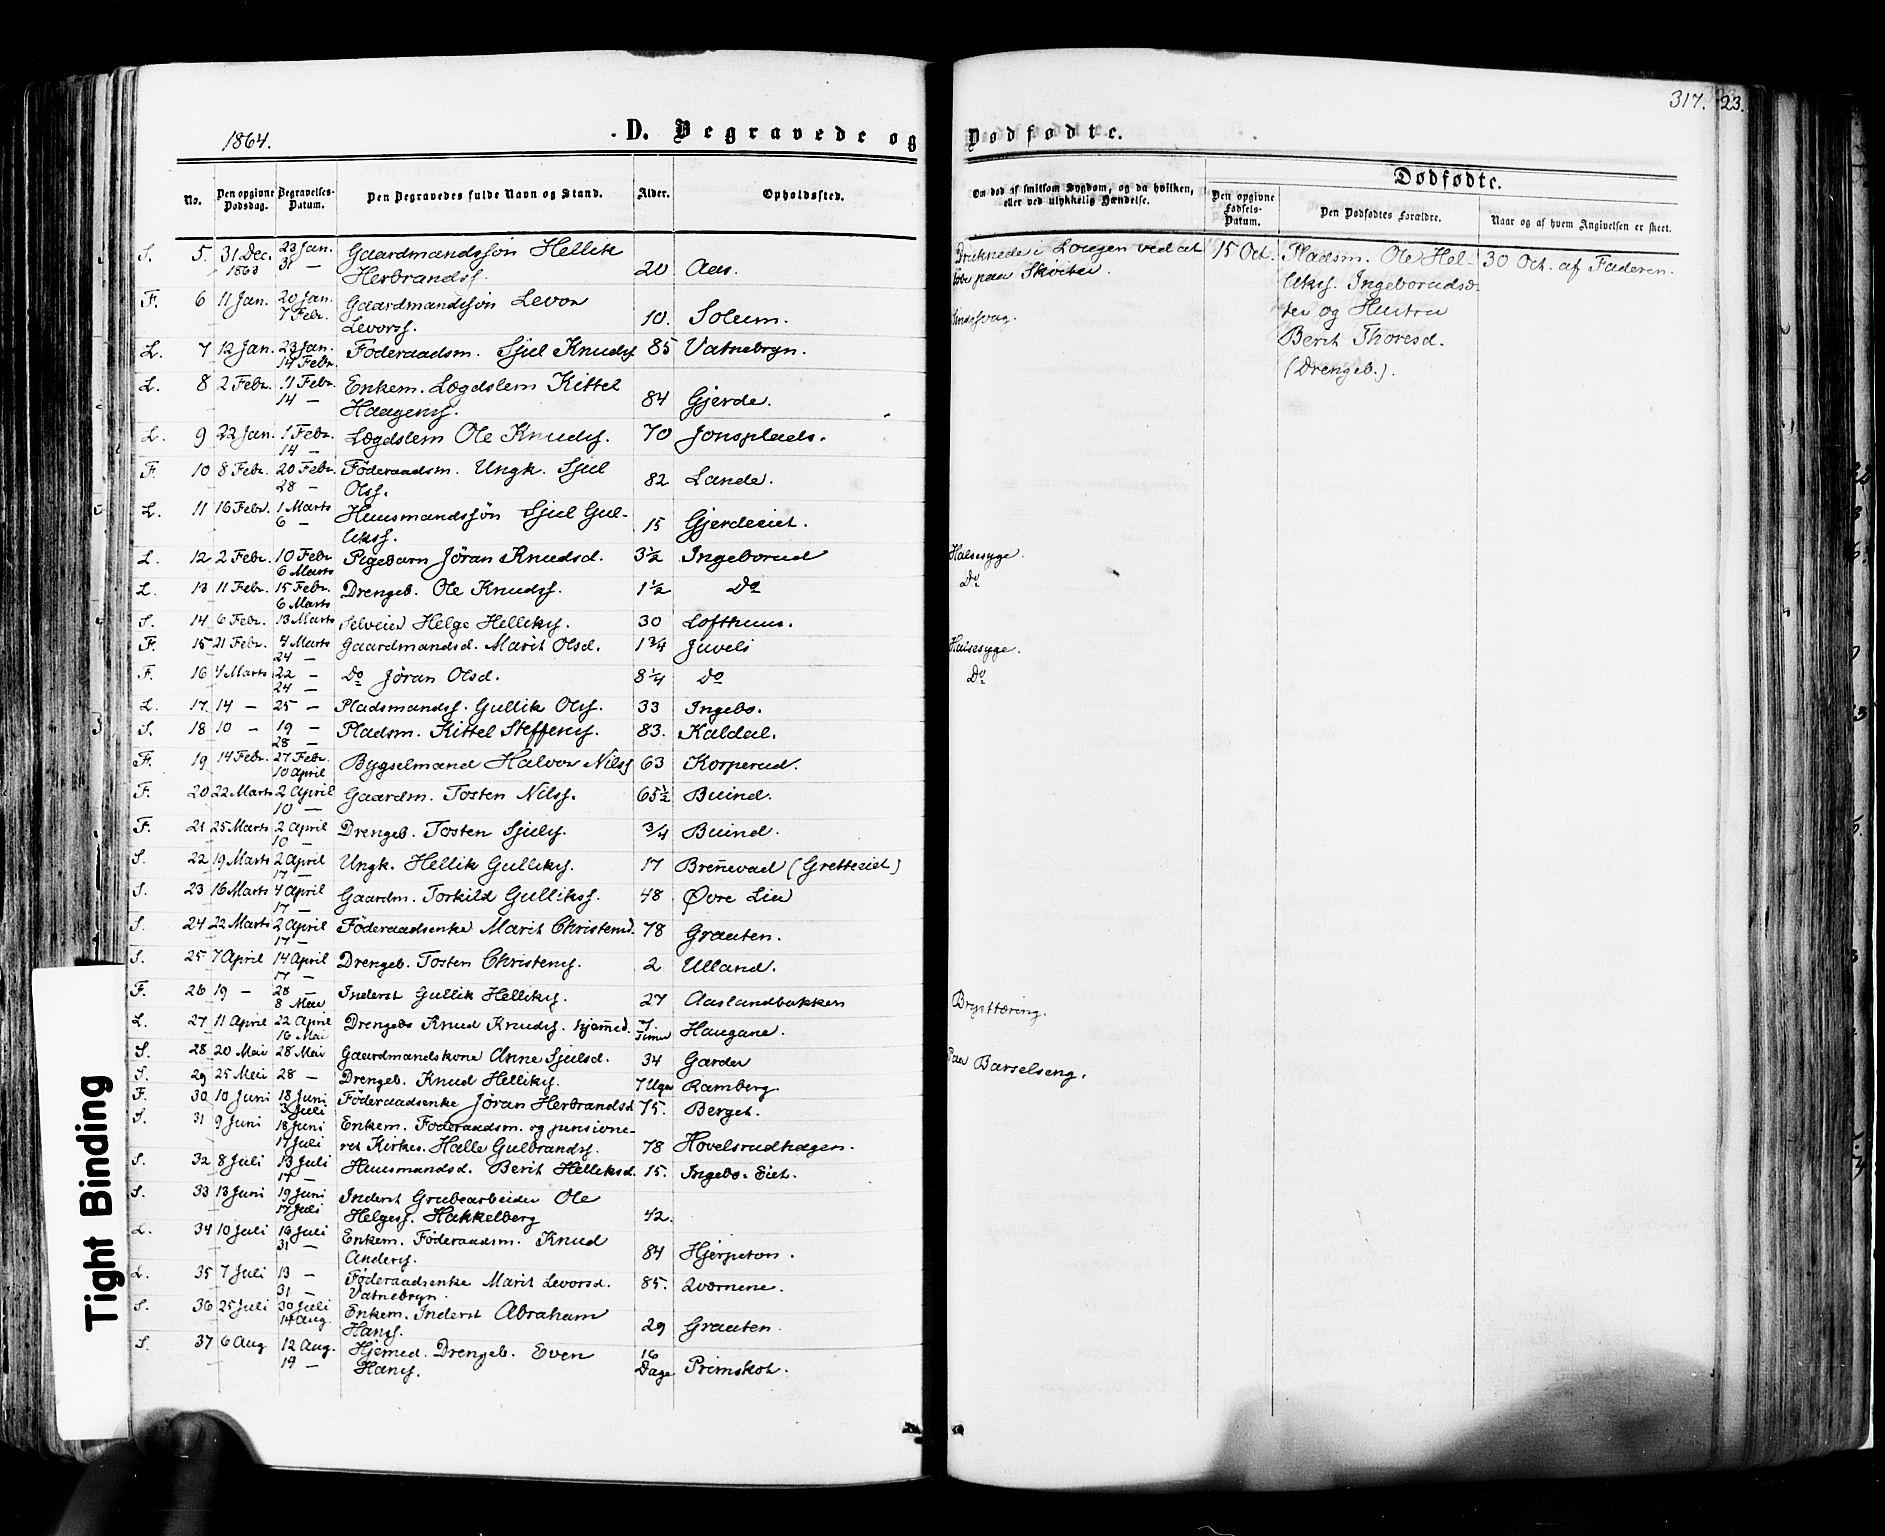 317. 23.
1864.
D. Begravede og Dødfødte.
No. Den opgivne Dødsdag. Begravelses-Datum. Den Begravedes fulde Navn og Stand. Alder. Opholdssted. Om død af smitsom Sygdom, og da hvilken, eller ved ulykkelig Hændelse.
Dødfødte.
Den opgivne Fødsels-Datum. Den Dødfødtes Forældre. Naar og af hvem Angivelsen er skeet.
S. 5. 31 Dec. 1863 23 Jan. 31 — Gaardmandssøn Hellik
Herbrandss. 20 Aas. Druknede i Lougen ved at
løbe paa Skøiter.
15 Oct. Pladsm. Ole Hel-
liks. Ingeborudsø.
og Hustru
Berit Thoresd.
(Drengeb.).
30 Oct. af Faderen
F. 6 11 Jan. 20 Jan. 7 Febr. Gaardmandssøn Levor
Levorss. 10. Soleim. Sindssvag.
L. 7 12 Jan. 23 Jan. 14 Febr. Føderaadsm. Sjul Knuds. 85 Vatnebryn.
L. 8 2 Febr. 11 Febr. 14 — Enkem. Lægdslem Kittel
Haagens. 84 Gjerde.
L. 9 22 Jan. 1 Febr. 14 — Lægdslem Ole Knuds. 70 Jonsplads.
F. 10 8 Febr. 20 Febr. 28 — Føderaadsm. Ungk. Sjul
Olss. 82 Lande.
L. 11 16 Febr. 1 Marts 6 — Huusmandssøn Sjul Gul-
likss. 15 Gjerdeeiet.
L. 12 2 Febr. 10 Febr. 6 Marts Pigebarn Jøran Knudsd. 3½ Ingeborud Halsesyge.
L. 13 11 Febr. 15 Febr. 6 Marts Drengeb. Ole Knudss. 1½ Do Do
S. 14 6 Febr. 13 Marts Selveier Helge Helliks. 30 Lofthuus.
F. 15 21 Febr. 4 Marts 24 — Gaardmandsd. Marit Olsd. 1¾ Juveli Halsesyge.
F. 16 4 Marts 22 — 24 — Do Jøran Olsd. 8¼ Do Do
L. 17. 14 — 25 — Pladsmandss. Gullik Olss. 33 Ingebo.
S. 18 10 — 19 — 28 — Pladsm. Kittel Steffens. 83. Kaldal.
F. 19 14 Febr. 27 Febr. 10 April Bygselmand Halvor Nilss. 63 Korperud.
F. 20 22 Marts 2 April 10 — Gaardm. Tosten Nilss. 65½ Buind.
F. 21 25 Marts 2 April 10 — Drengeb. Tosten Sjuls. ¾ Buind.
S. 22 19 Marts 2 April 17 — Ungk. Hellik Gulliks. 17 Breñevad (Gretteeiet)
S. 23 16 Marts 4 April 17 — Gaardm. Torkild Gullikss. 48 Øvre Lia
S. 24 22 Marts 2 April 17 — Føderaadsenke Marit Christensd. 78 Grauten.
S. 25 7 April 14 April 17 — Drengeb. Tosten Christens. 2 Ulland.
F. 26 19 — 28 — 8 Mai Inderst Gullik Helliks. 27 Aaslandbakken Brysttæring.
L. 27 11 April 22 April 16 Mai Drengeb. Knud Knuds. hjemed. 7. Timer Haugane.
S. 28 20 Mai 28 Mai Gaardmandskone Anne Sjulsd. 34 Garder Paa Barselseng.
S. 29 25 Mai 28 — Drengeb. Knud Helliks. 7 Uger Ramberg.
F. 30 10 Juni 18 Juni 3 Juli Føderaadsenke Jøran Herbrandsd 75. Berget.
S. 31 9 Juni 18 Juni 17 Juli Enkem. Føderaadsm. og pensione-
ret Kirkes. Halle Gulbrands. 78 Hovelsrudhagen.
S. 32 8 Juli 13 Juli 17 — Huusmandsd. Berit Helliksd. 15. Ingebo-Eiet.
S. 33 13 Juni 19 Juni 17 Juli Inderst Grubearbeider Ole
Helges. Hakkelberg 42.
L. 34 10 Juli 16 Juli 31 — Enkem. Føderaadsm. Knud
Anders. 84 Hjerpeton.
L. 35 7 Juli 13 — 31 — Føderaadsenke Marit Levorsd.
Vatnebryn. 85. Qværnene.
S. 36 25 Juli 30 Juli 14 Aug. Enkem. Inderst Abraham
Hans. 29 Grauten
S. 37 6 Aug 12 Aug. 19 — Hjemed. Drengeb. Even
Hans. 16 Dage Primskot.
Tight Binding